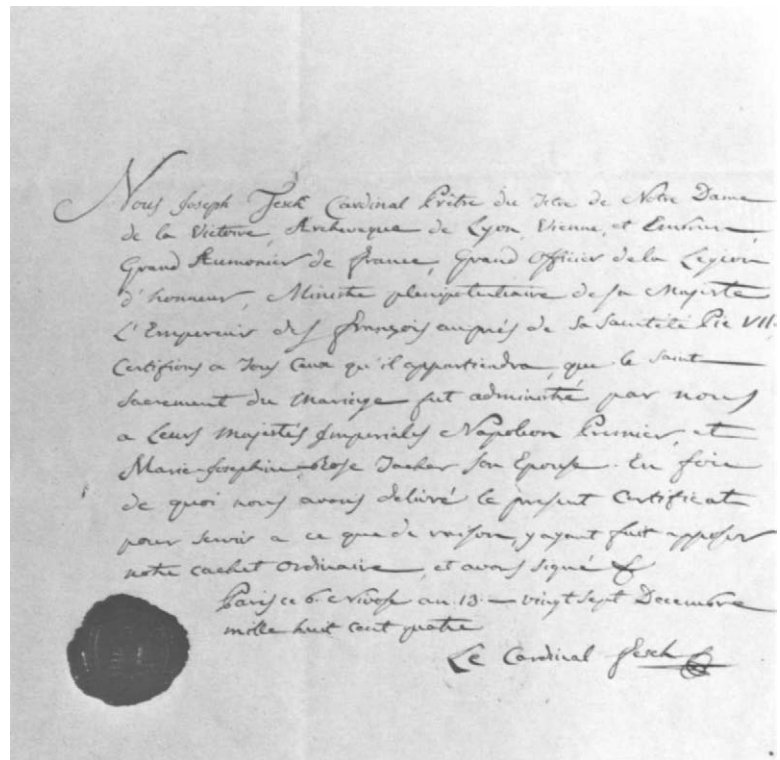 Nous Joseph Fesch Cardinal Prêtre du Titre de Notre Dame
de la Victoire, Archeveque de Lyon, Vienne, et Embrun,
Grand Aumonier de france, Grand Officier de la Legion
d'honneur, Ministre plenipotentiaire de sa Majesté
L'Empereur des françois auprès de sa Sainteté Pie VII,
Certifions a Tous Ceux qu'il appartiendra, que le Saint
Sacrement du Mariage fut administré par nous
a Leurs Majestés Imperiales Napoleon Premier, et
Marie-Josephine-Rose Tascher son Epouse. En foi
de quoi nous avons delivré le present Certificat
pour servir a ce que de raison, y ayant fait apposer
notre cachet ordinaire, et avons signé
Paris ce 6. Nivose an 13. — vingt sept Decembre
mille huit cent quatre
Le Cardinal Fesch